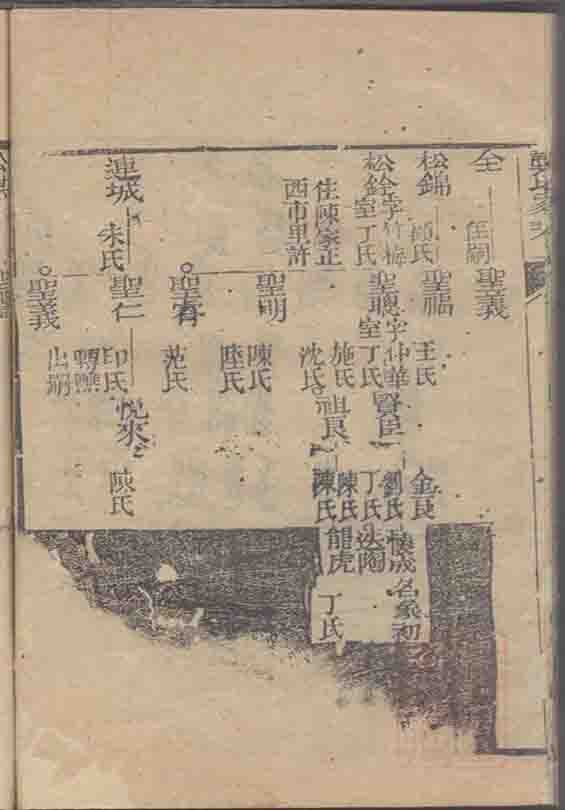 全
任嗣
聖義
松錦
顧氏
聖福
王氏
金氏
松銓字竹梅
室丁氏
住陳家正
西市里許
聖聰字仲華
室丁氏
施氏
沈氏
賢臣
劉氏
丁氏
名象初
法陶
祖良
陳氏
陳氏
龍虎
丁氏
聖明
陳氏
陸氏
聖春
范氏
連城
朱氏
聖仁
印氏
悅來
陳氏
聖義
出嗣